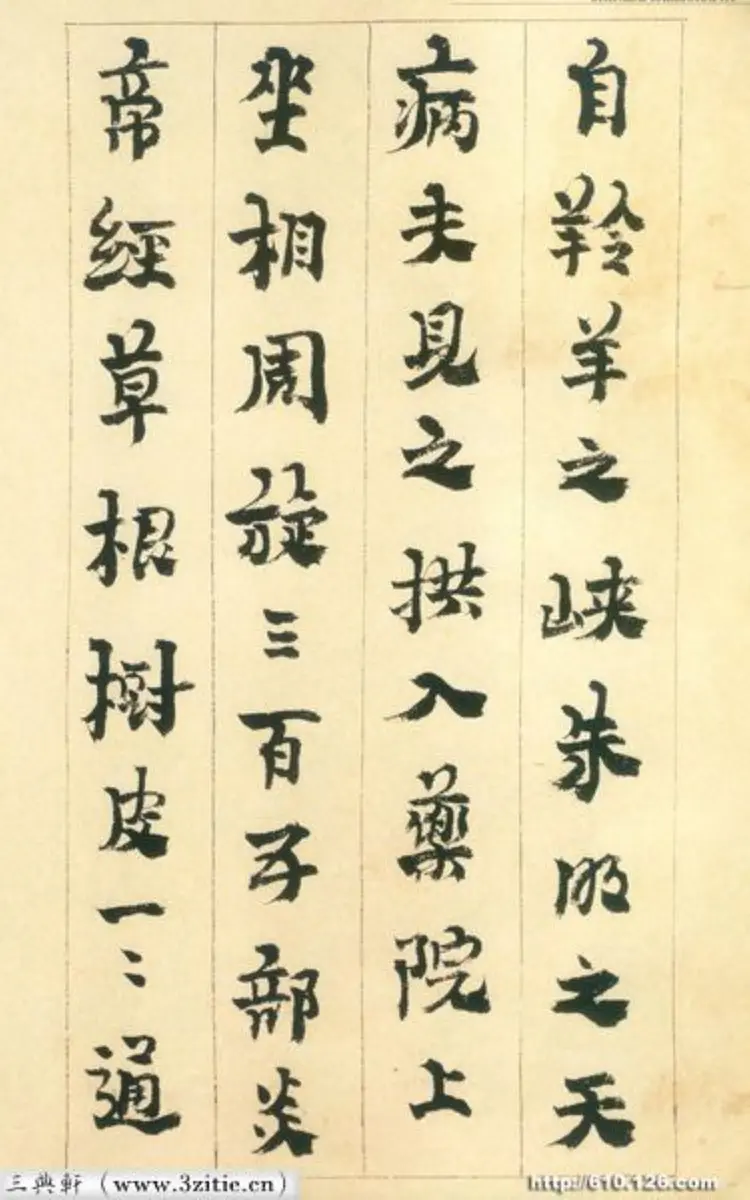 自羚羊之峡朱明之天
病夫見之拱入藥院上
坐相周旋三百子部炎
帝經草根樹皮一〻通
三典軒（www.3zitie.cn）
http://610.126.com